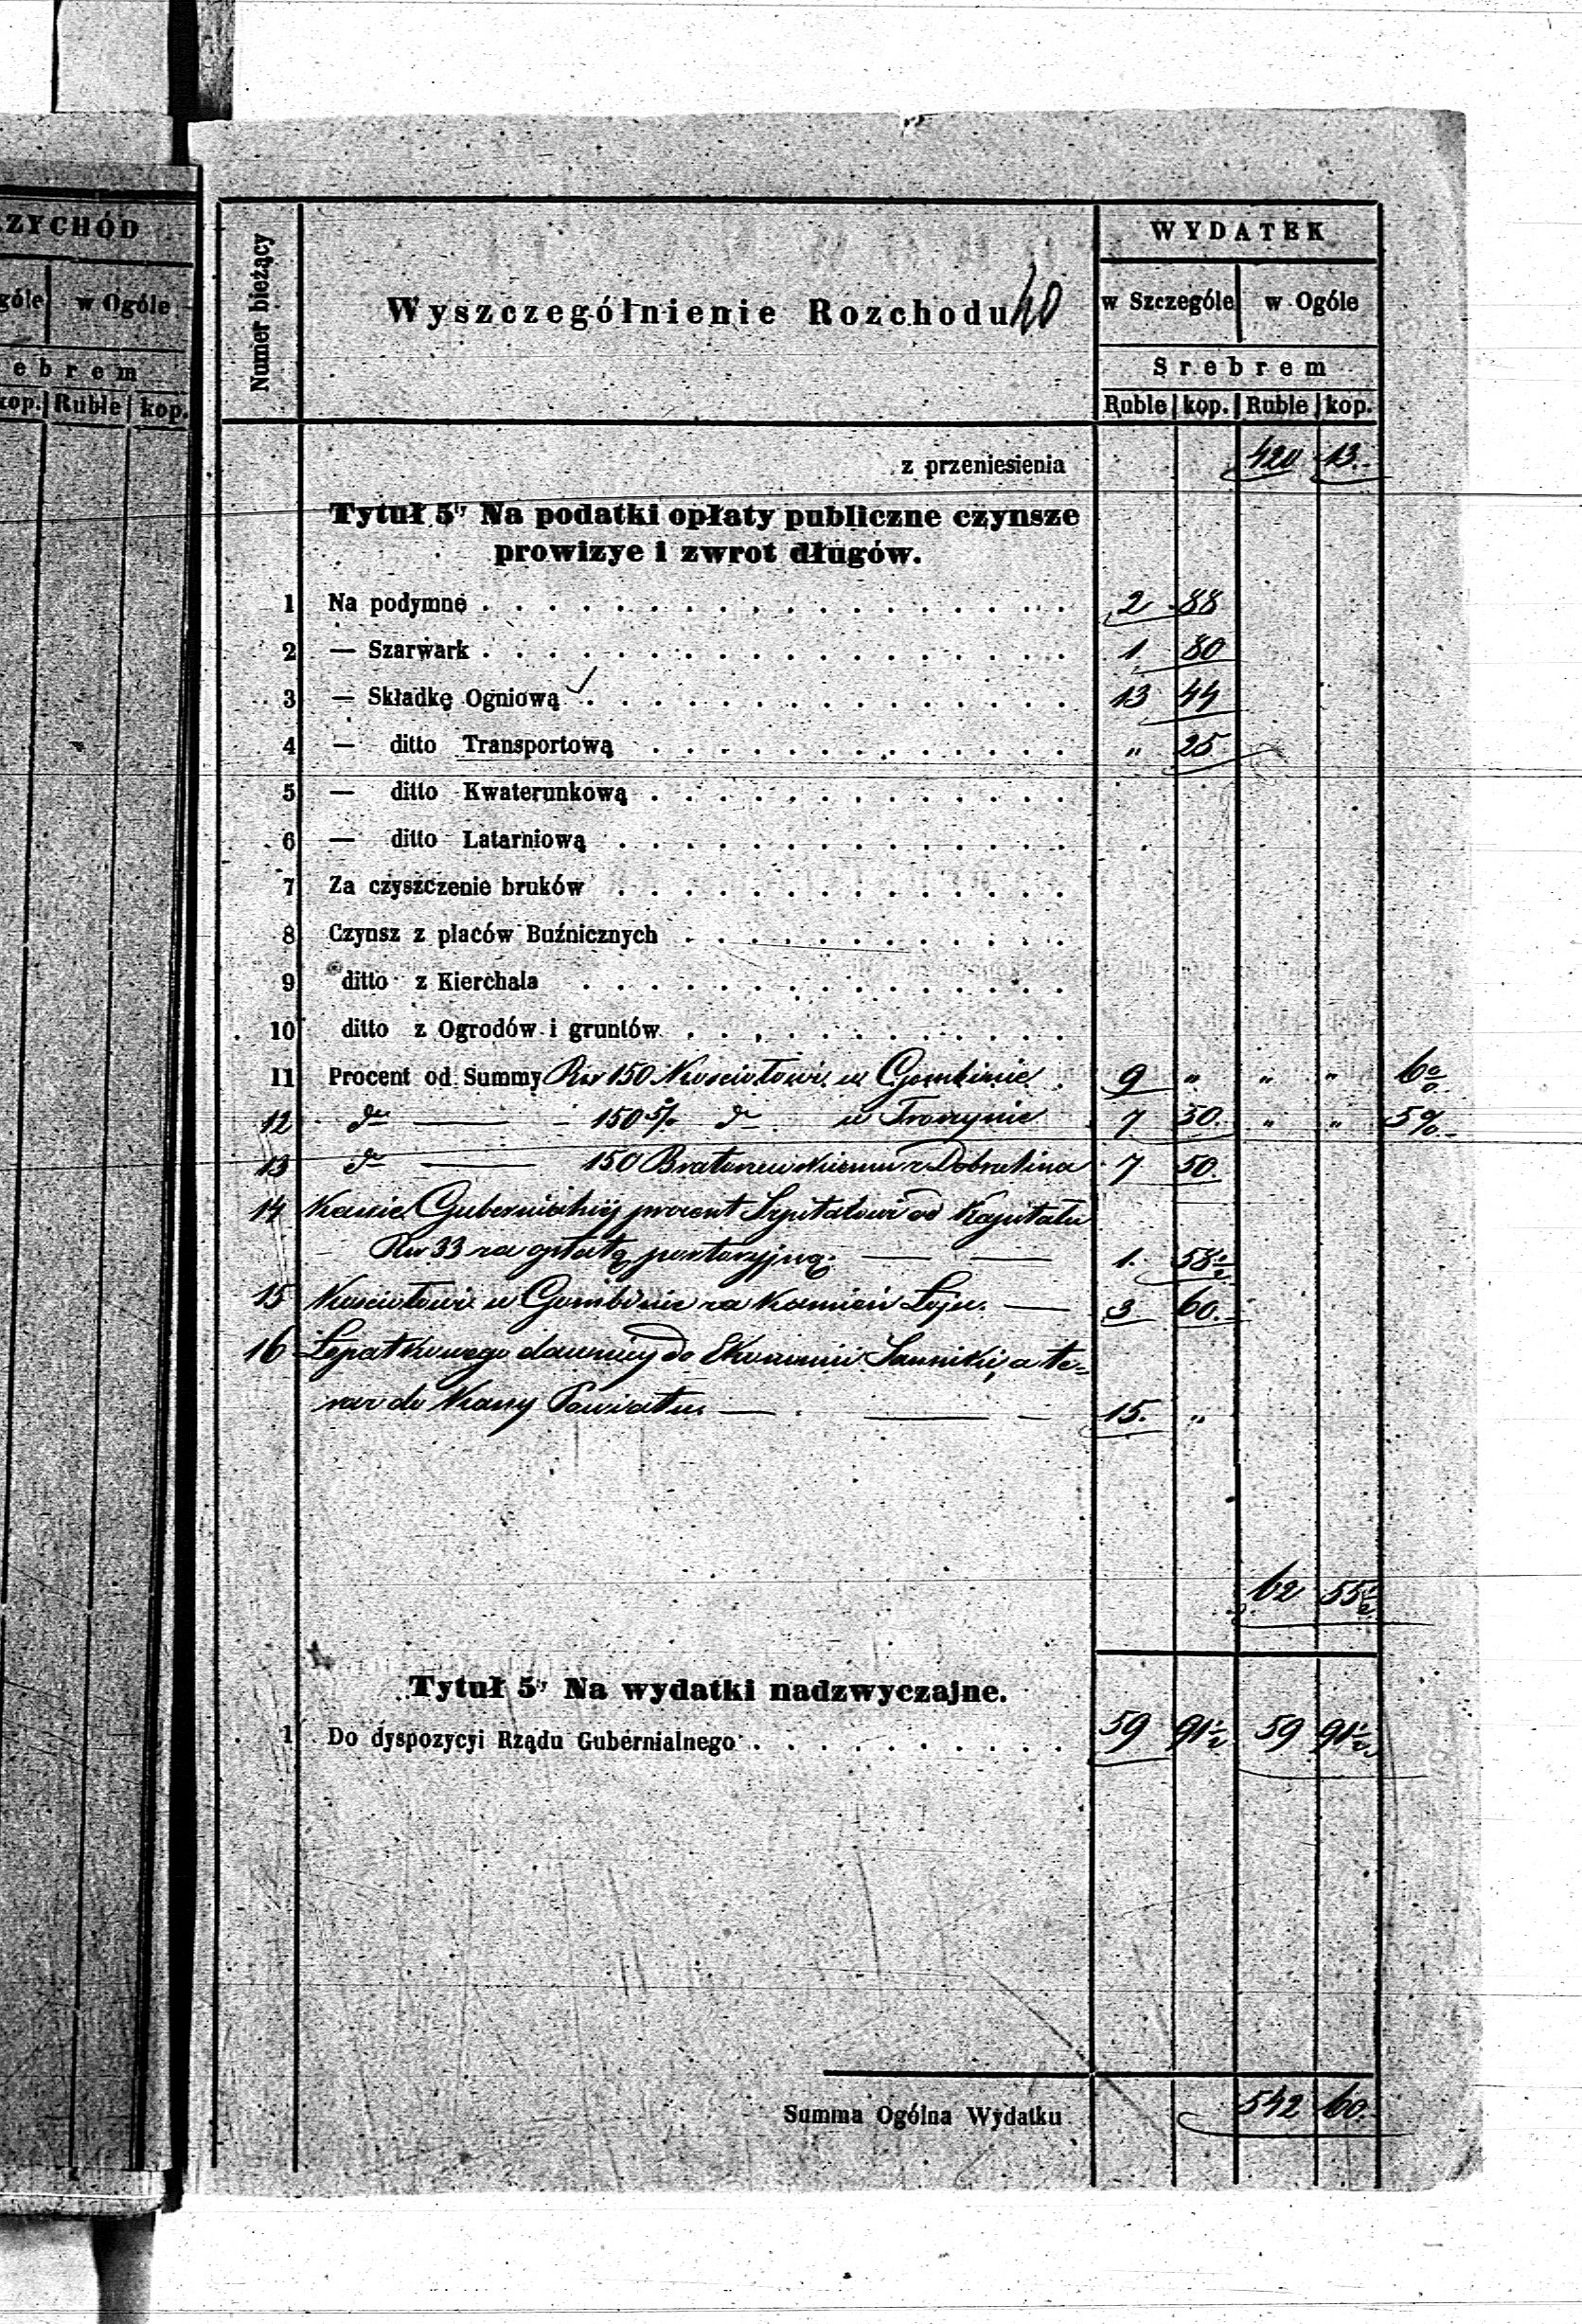 ZYCHÓD
góle w Ogóle
ebrem
kop. Ruble kop.
Numer bieżący
Wyszczególnienie Rozchodu 40
WYDATEK
w Szczególe w Ogóle
Srebrem
Ruble kop. Ruble kop.
z przeniesienia 420 13.
Tytuł 5ty Na podatki opłaty publiczne czynsze
prowizye i zwrot długów.
1 Na podymne 2 88
2 — Szarwark 1 80
3 — Składkę Ogniową 13 44
4 — ditto Transportową " 25
5 — ditto Kwaterunkową
6 — ditto Latarniową
7 Za czyszczenie bruków
8 Czynsz z placów Buźnicznych
9 ditto z Kierchala
10 ditto z Ogrodów i gruntów
11 Procent od Summy Rsr 150 Kościołowi w Gombinie 9 " " " 6%
12 do — 150 5% do w Troszynie 7 50. " " 5%
13 do — 150 z Dobratina 7 50.
14 Kassie Gubernialnéj procent Szpitalowi od Kapitału
Rsr 33 za opłatą — — 1. 58½
15 Kościołowi w Gombinie za Kamień Łoju — 3 60.
16 Łopatkowego dawniéj do Ekonomii Sanniki, a te-
raz do Kassy Powiatu — — 15. "
62 55½
Tytuł 5ty Na wydatki nadzwyczajne.
1 Do dyspozycyi Rządu Gubernialnego 59 91½ 59 91½
Summa Ogólna Wydatku 542 60.